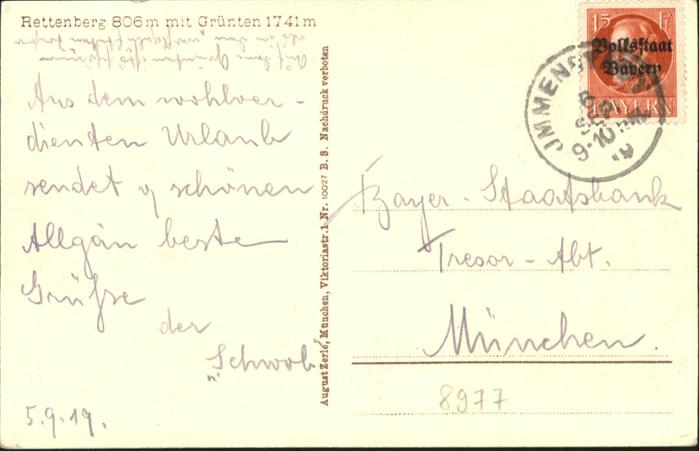 Rettenberg 806 m mit Grünten 1741 m
Auf dem Grünten ist's schöner
als in dem
Aus dem wohlver-
dienten Urlaub
sendet v schönen
Allgäu beste
Grüße
der
"Schwob"
5.9.19.
August Zerle, München, Viktoriastr. 1. Nr. 10027 B. S. Nachdruck verboten
15 Pf.
Volksstaat
Bayern
BAYERN
IMMENST
6
SEP
9-10
19
Bayer. Staatsbank
Tresor - Abt.
München.
8977